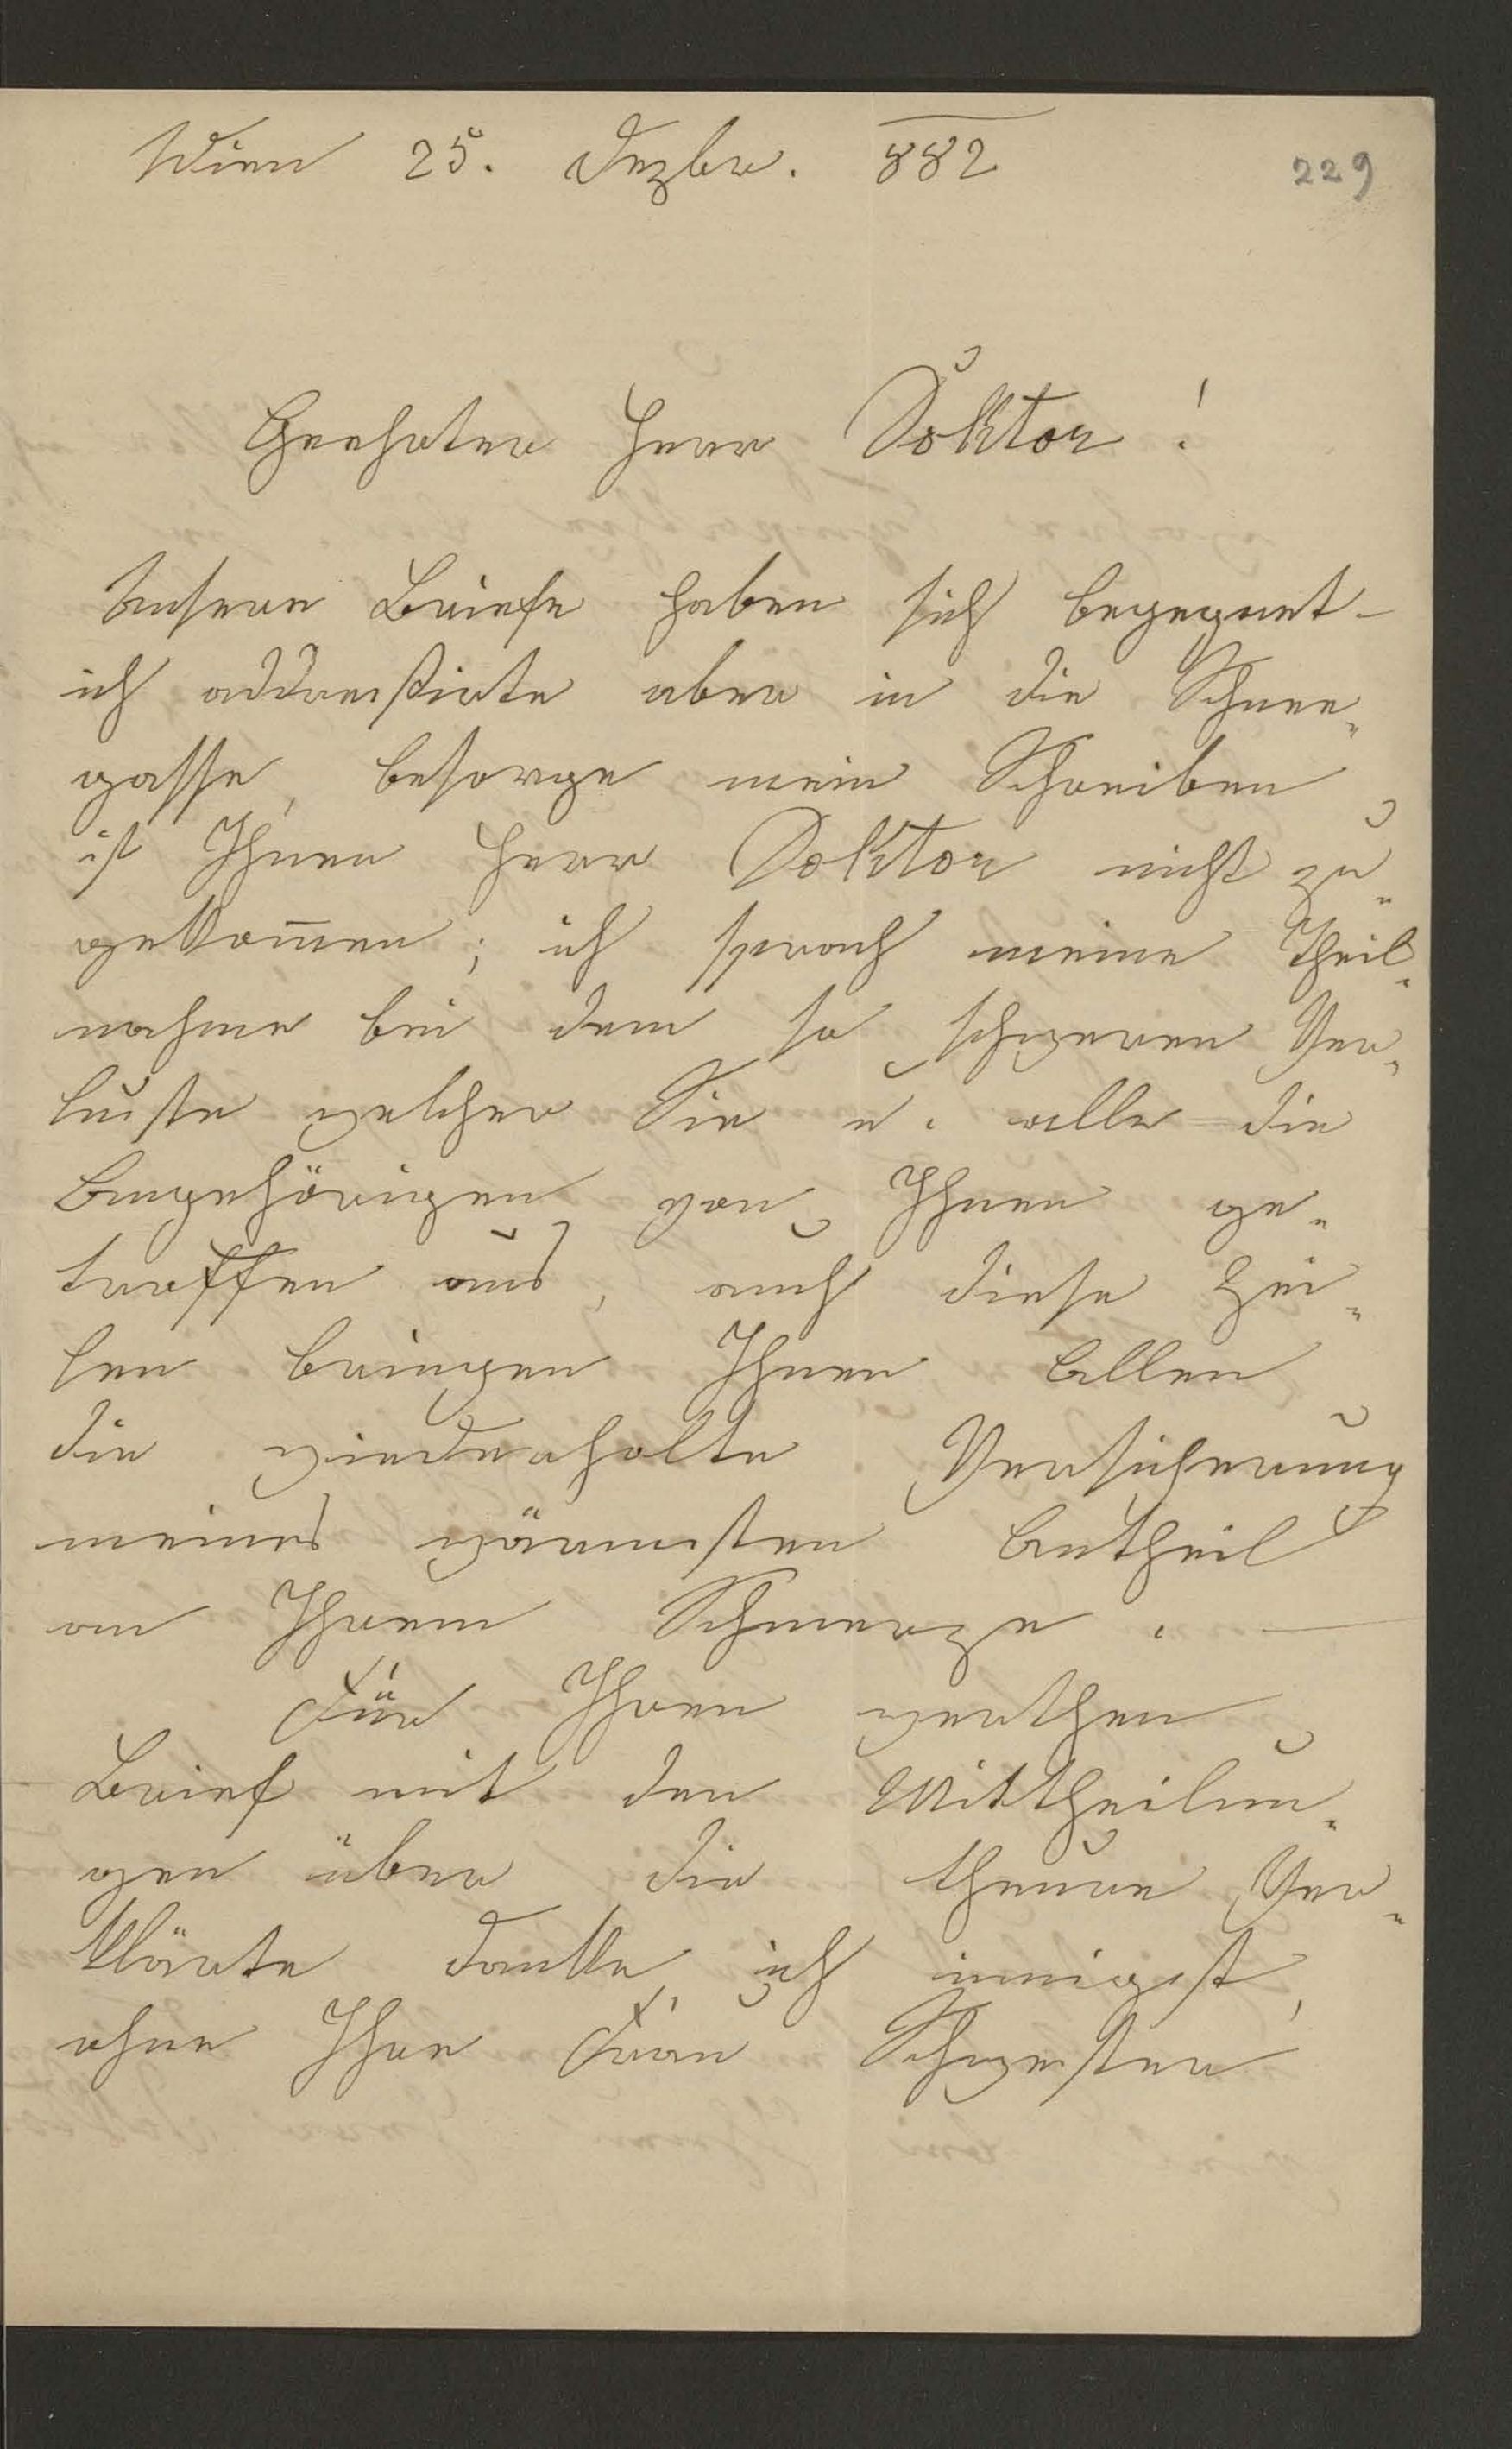 Wien 25. Dezbr. 882
229
Geehrter Herr Doktor!
Unsere Briefe haben sich begegnet –
ich addressirte aber in die Schnee-
gasse, besorge mein Schreiben
ist Ihnen Herr Doktor nicht zu-
gekom̄en; ich sprach meine Theil-
nahme bei dem so schweren Ver-
luste welcher Sie u. alle die
Angehörigen von Ihnen ge-
troffen aus, auch diese Zei-
len bringen Ihnen Allen
die wiederholte Versicherung
meines wärmsten Antheil
an Ihrem Schmerze. —
Für Ihren werthen
Brief mit den Mittheilun-
gen über die theure Ver-
klärte danke ich innigst,
ohne Ihre Frau Schwester